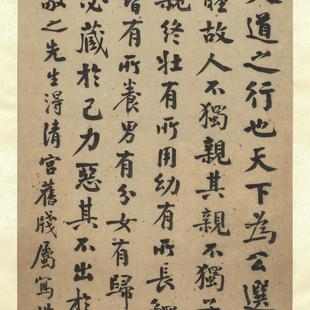 大道之行也天下為公選
睦故人不獨親其親不獨子
親終壯有所用幼有所長鰥
皆有所養男有分女有歸
必藏於己力惡其不出於
敬之先生得清宮舊牋屬寫